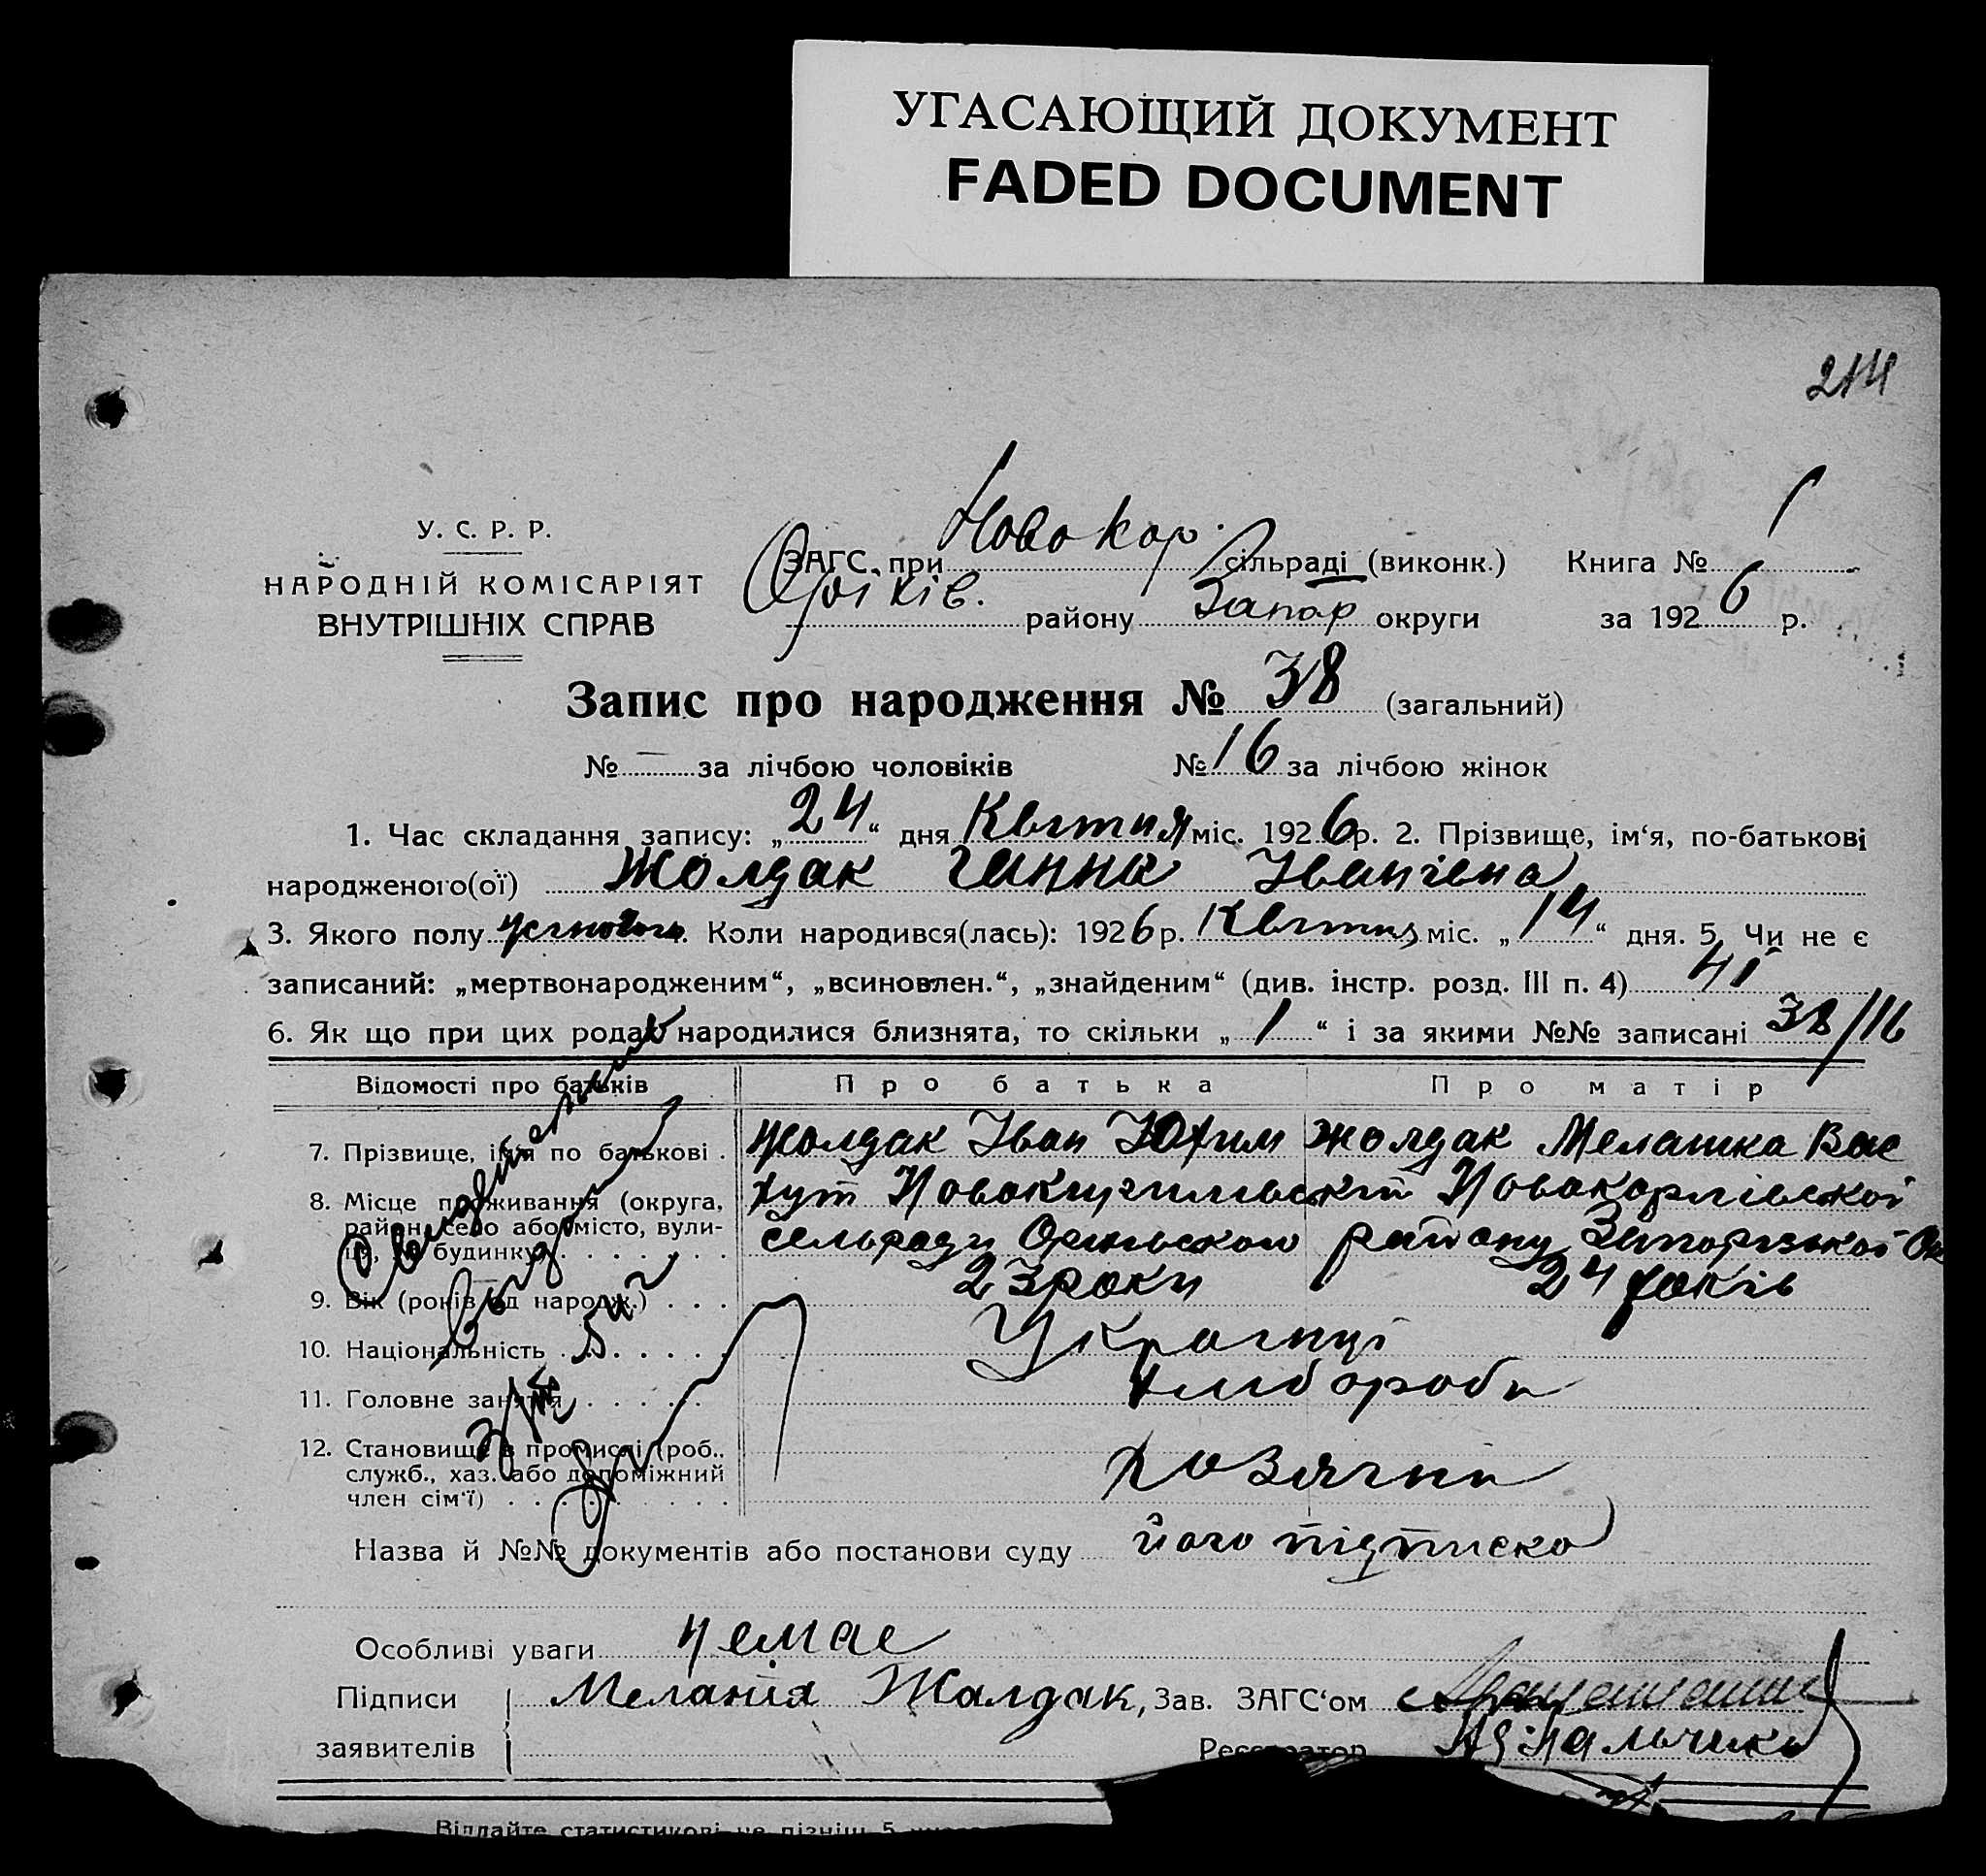 УГАСАЮЩИЙ ДОКУМЕНТ
FADED DOCUMENT
214
У. С. Р. Р.
НАРОДНІЙ КОМІСАРІЯТ
ВНУТРІШНІХ СПРАВ
ЗАГС при Ново кар. сільраді (виконк.) Книга № 1
Оріхів. району Запор округи за 1926 р.
Запис про народження № 38 (загальний)
№ — за лічбою чоловіків № 16 за лічбою жінок
1. Час складання запису: „24“ дня Квітня міс. 1926 р. 2. Прізвище, ім‘я, по-батькові
народженого(ої) Жолдак Ганна Іванівна
3. Якого полу жіночого. Коли народився(лась): 1926 р. Квітня міс. „14“ дня. 5. Чи не є
записаний: „мертвонародженим“, „всиновлен.“, „знайденим“ (див. інстр. розд. III п. 4) ні
6. Як що при цих родах народилися близнята, то скільки „1“ і за якими №№ записані 38/16
Відомості про батьків Про батька Про матір
7. Прізвище, ім‘я по батькові . Жолдак Іван Юхим Жолдак Мелашка Вас
8. Місце проживання (округа, хут Новокарлівської
район, село або місто, вули-
ця, № будинку) . . . . . . . сельради району Запорізької Ок
9. Вік (років од народж.) . . . 23 роки 24 років
10. Національність . . . . . . Українці
11. Головне заняття . . . . . . хлібороби
12. Становище в промислі (роб.,
служб., хаз. або допоміжний
член сім‘ї) . . . . . . . . . хозяїни
Назва й №№ документів або постанови суду його підписка
Особливі уваги немає
Підписи Меланія Жалдак, Зав. ЗАГС‘ом
заявителів Реєстратор
Віддайте статистикові не пізніш 5